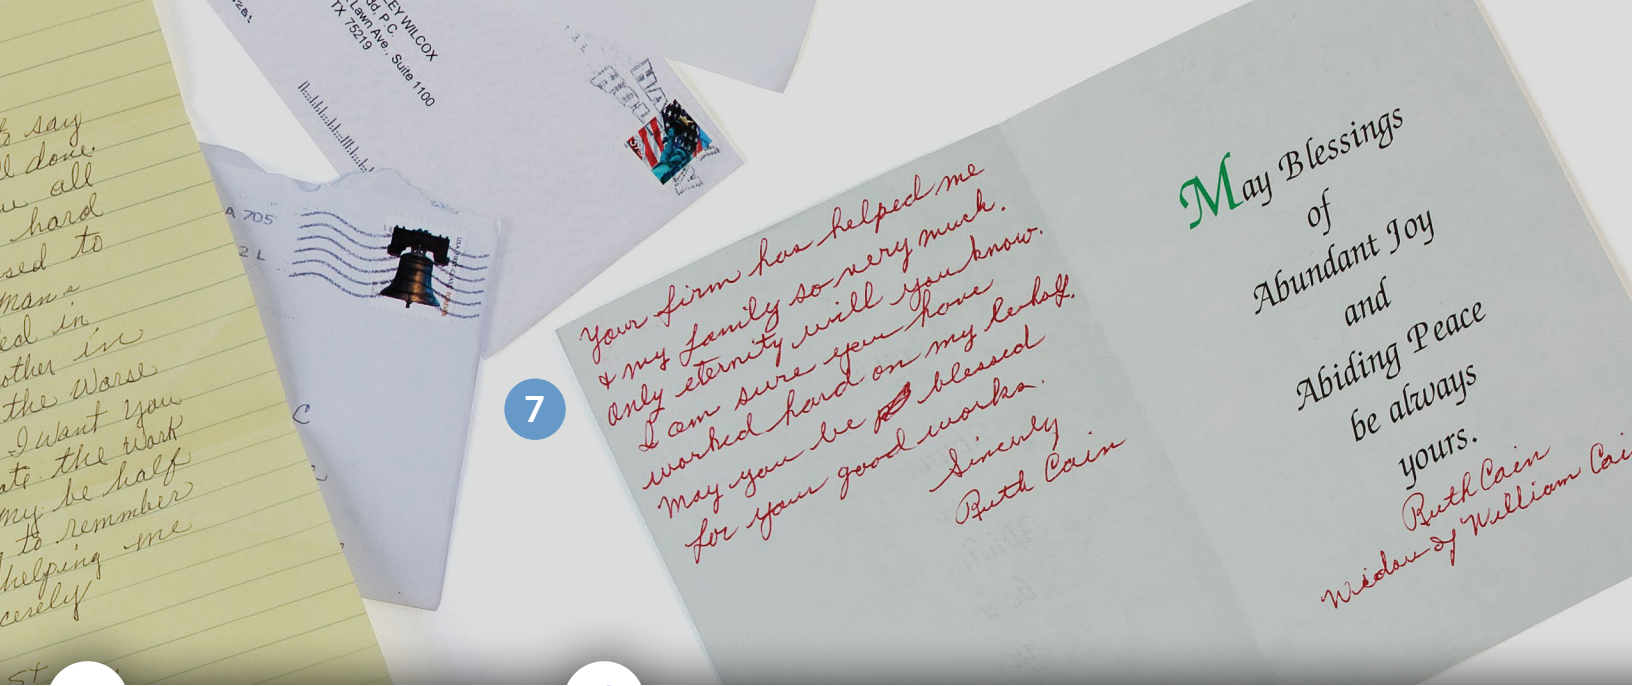 to say
ll done.
all
hard
sed to
man
ed in
other in
the Worse
I want you
ate the work
my be half
to remmber
helping me
cerely
St
EY WILCOX
dd, P.C.
Lawn Ave., Suite 1100
TX 75219
A 705
2 L
C
7
Your firm has helped me
& my family so very much.
Only eternity will you know.
I am sure you have
worked hard on my behalf.
May you be blessed
for your good works.
Sincerly
Ruth Cain
May Blessings
of
Abundant Joy
and
Abiding Peace
be always
yours.
Ruth Cain
Widow of William Cai